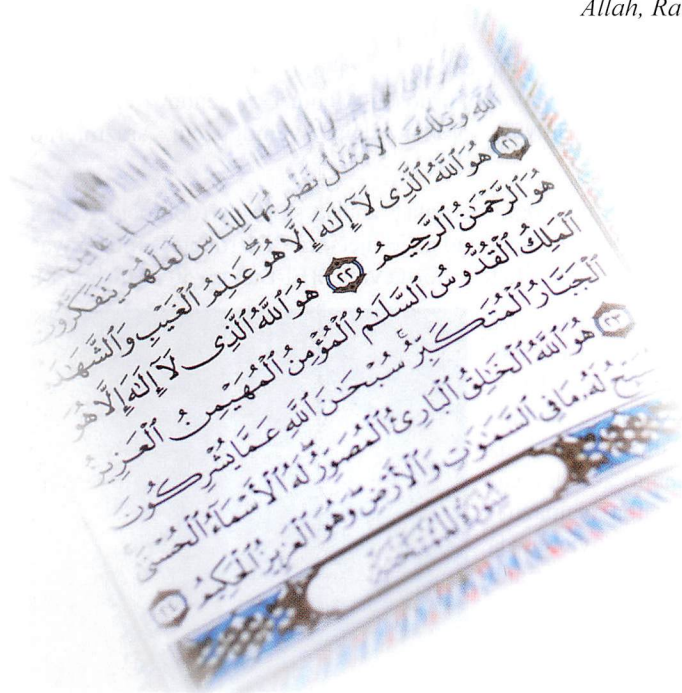 Allah, Ra
ٱللَّهِ وَتِلْكَ ٱلْأَمْثَٰلُ نَضْرِبُهَا لِلنَّاسِ لَعَلَّهُمْ يَتَفَكَّرُونَ
٢١ هُوَ ٱللَّهُ ٱلَّذِى لَآ إِلَٰهَ إِلَّا هُوَ عَٰلِمُ ٱلْغَيْبِ وَٱلشَّهَٰدَ
هُوَ ٱلرَّحْمَٰنُ ٱلرَّحِيمُ ٢٢ هُوَ ٱللَّهُ ٱلَّذِى لَآ إِلَٰهَ إِلَّا هُوَ
ٱلْمَلِكُ ٱلْقُدُّوسُ ٱلسَّلَٰمُ ٱلْمُؤْمِنُ ٱلْمُهَيْمِنُ ٱلْعَزِيزُ
ٱلْجَبَّارُ ٱلْمُتَكَبِّرُ ۚ سُبْحَٰنَ ٱللَّهِ عَمَّا يُشْرِكُونَ
٢٣ هُوَ ٱللَّهُ ٱلْخَٰلِقُ ٱلْبَارِئُ ٱلْمُصَوِّرُ ۖ لَهُ ٱلْأَسْمَآءُ ٱلْحُسْنَىٰ ۚ
يُسَبِّحُ لَهُۥ مَا فِى ٱلسَّمَٰوَٰتِ وَٱلْأَرْضِ ۖ وَهُوَ ٱلْعَزِيزُ ٱلْحَكِيمُ ٢٤
سُورَةُ ٱلْمُمْتَحَنَةِ